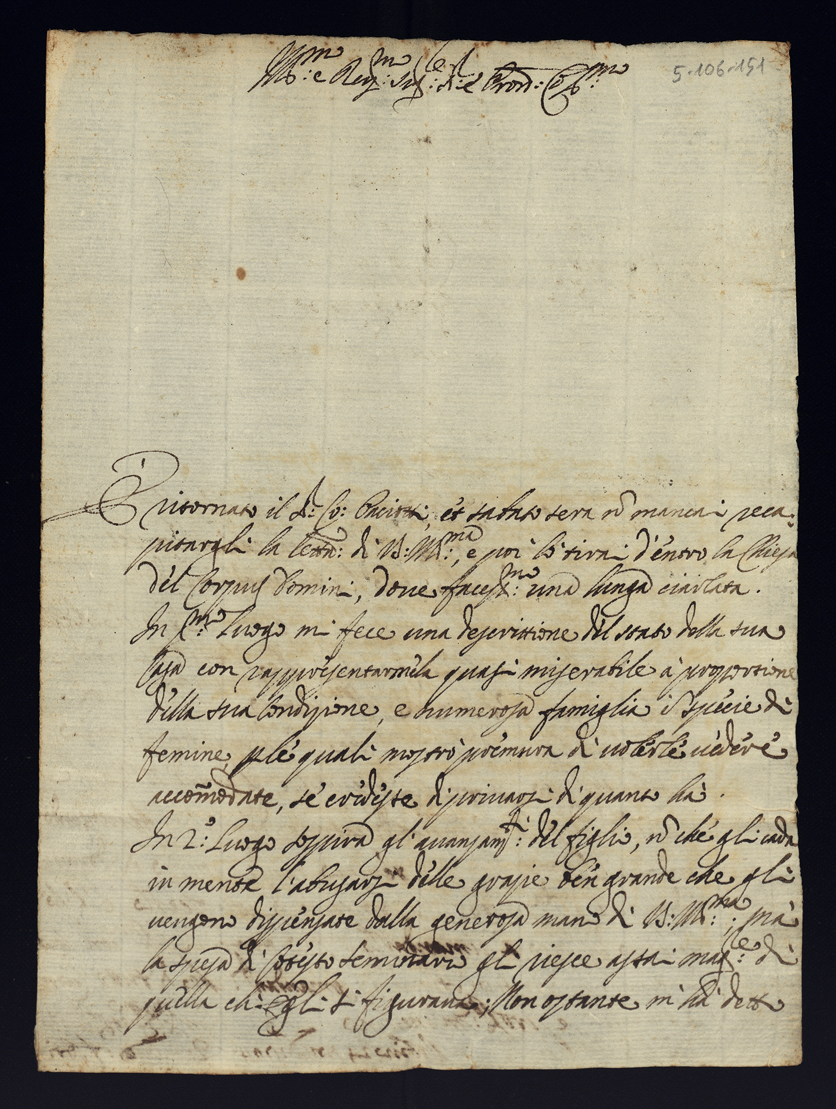 Ill:mo e Rev:mo Sig:re Sig:r e Pron: Col:mo
5-106-151
È ritornato il S:r Co: Paciotti, et sabato sera nō mancai reca-
pitargli la lettra: di V:S:Ill:ma, e poi lo tirai d'entro la Chiesa
del Corpus Domini, dove facess:mo una lunga ciarlata.
In P:mo Luogo mi fece una descrittione del stato della sua
Casa con rappresentarmela quasi miserabile à proportione
della sua Condizione, e numerosa famiglia ī specie di
femine, p le quali mostrò premura di volerle vedere
accom̄odate, se credesse di privarsi di quanto hà.
In 2:o Luogo sospira gl'avanzam:ti del figlio, nō che gli cada
in mente l'abusarsi delle grazie ben grande che gli
vengono dispensate dalla generosa mano di V:S:Ill:ma; mà
la spesa di cotesto seminario gli riesce assai mag:re di
quella ch'Egli si figurava; Non ostante mi hà detto